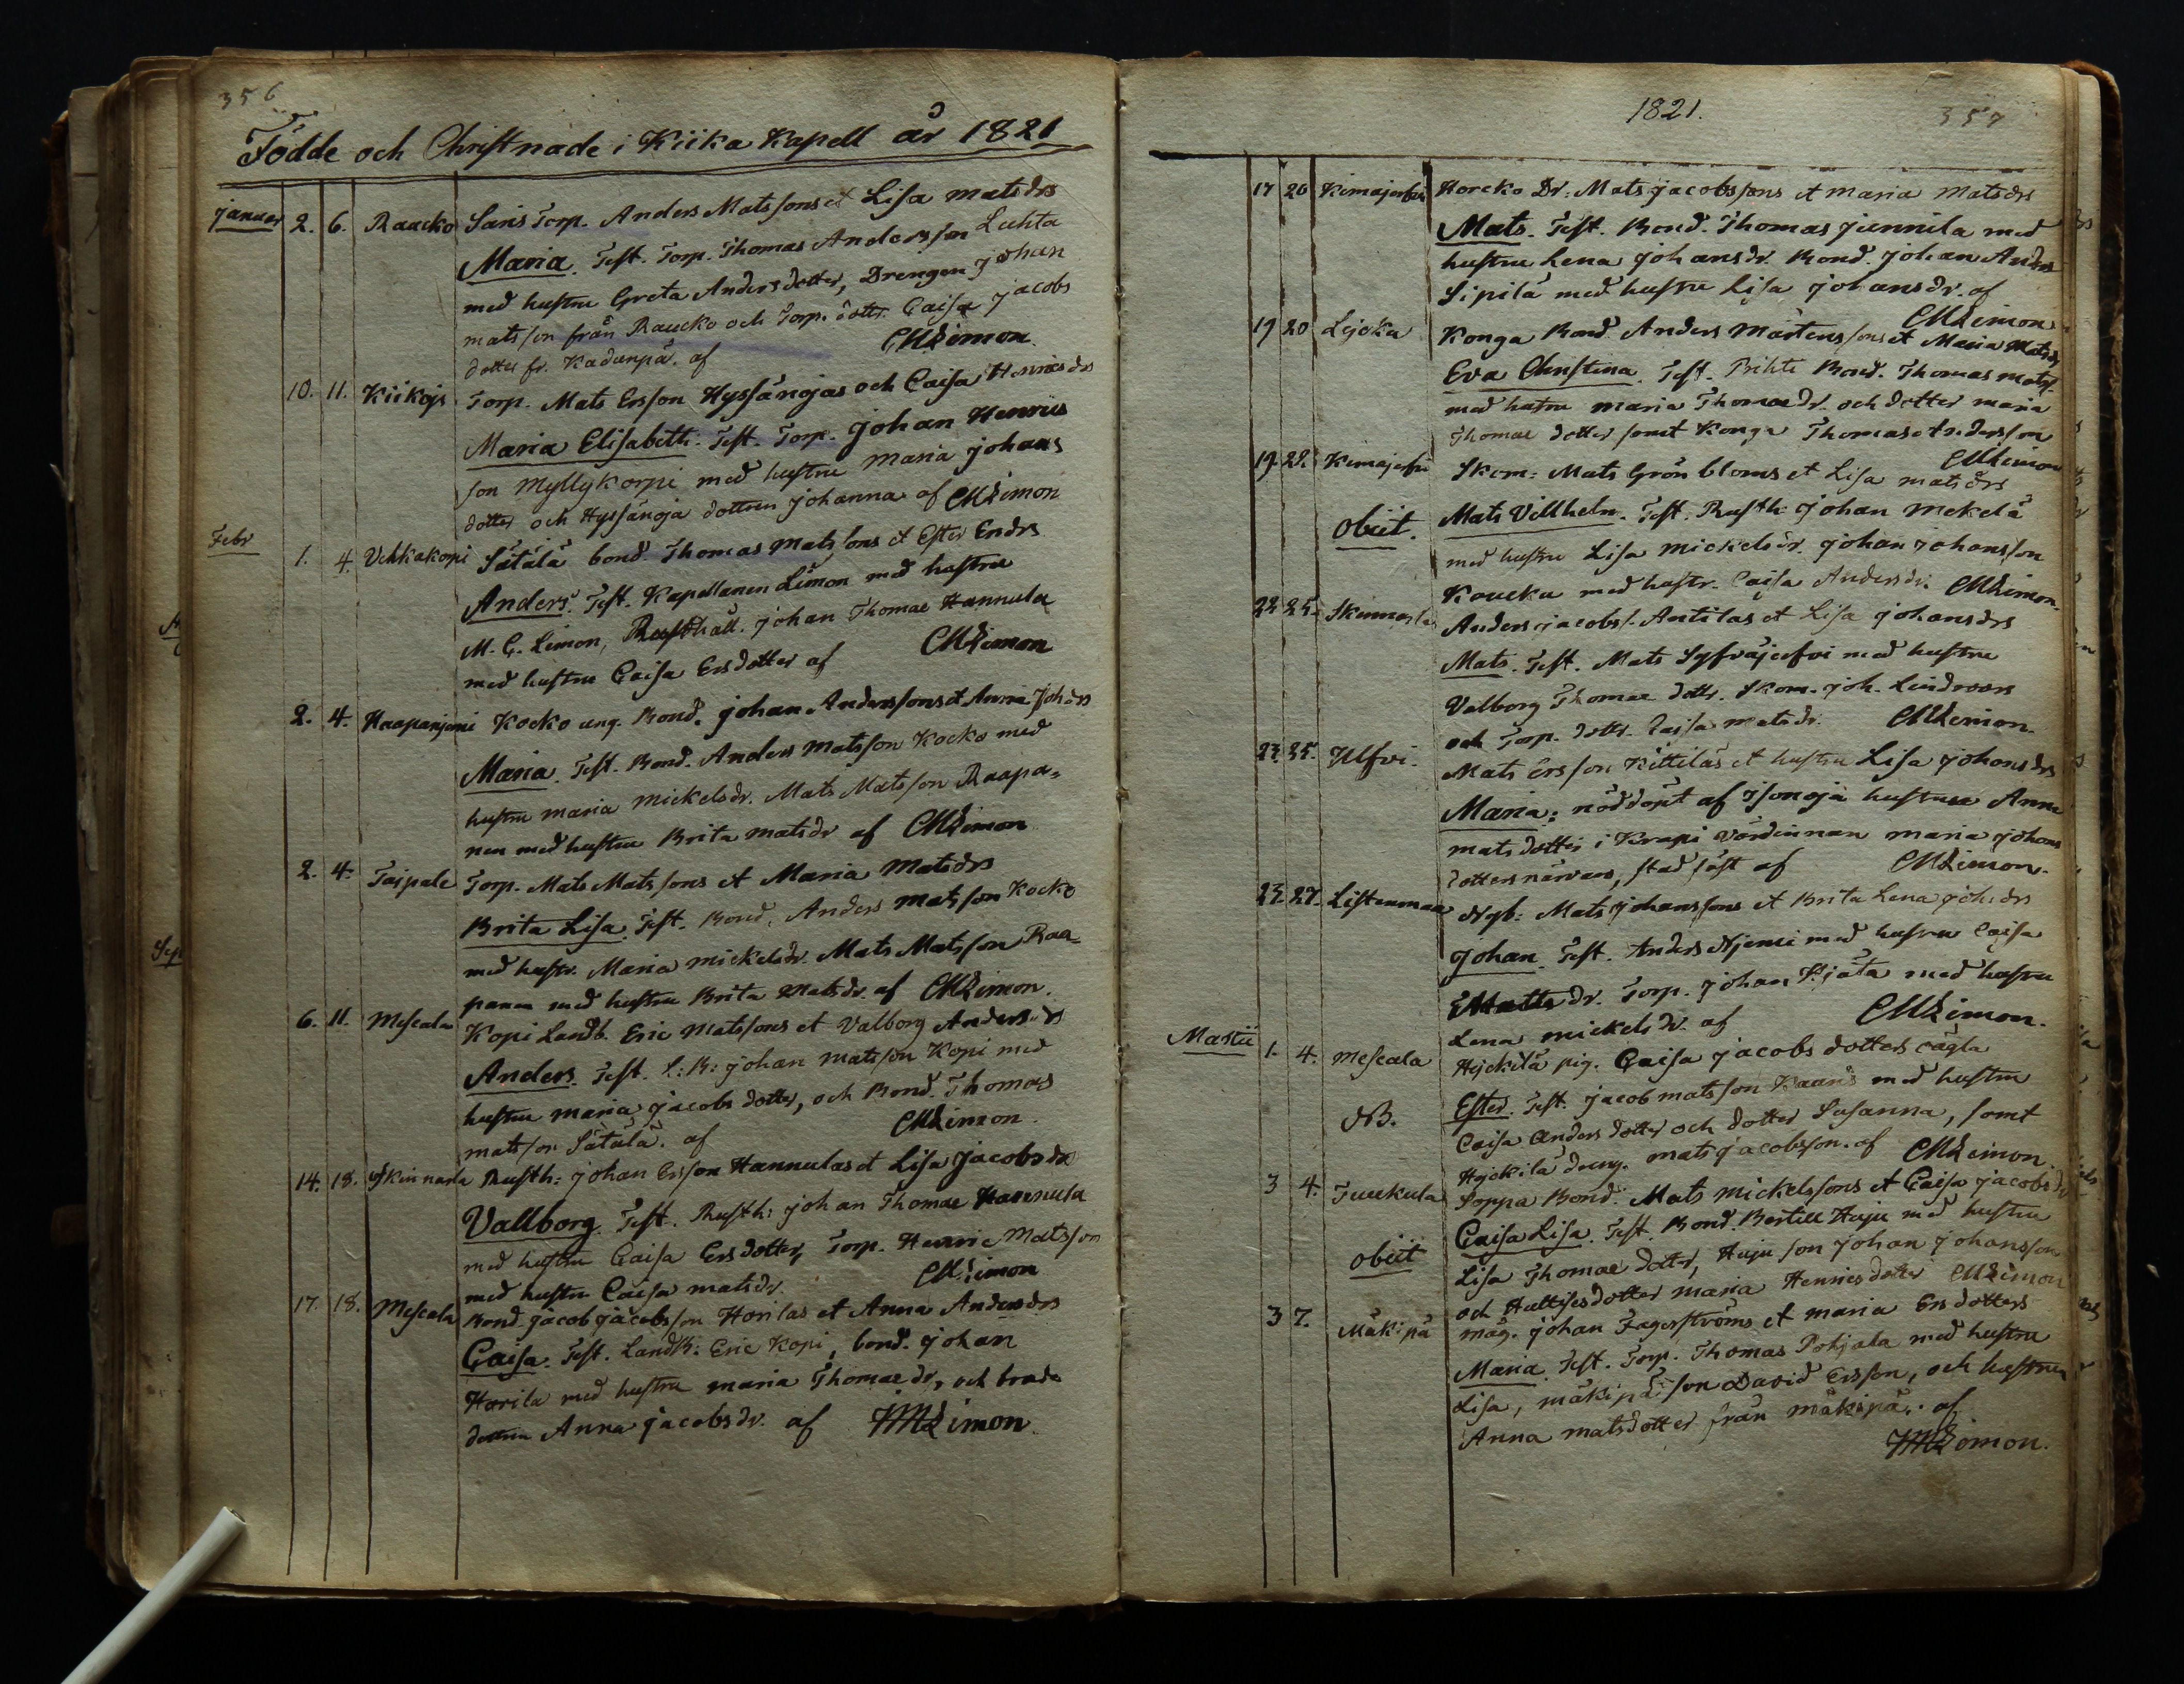 356
Födde och Christnade i Kiika Kapell år 1821
januar 2. 6. Raucko Saris Torp. Anders Matssons et Lisa matsdrs
Maria. Test. Torp. Thomas Andersson Luhta
med hustru Greta Andersdotter, Drengen Johan
matsson från Raucko och Torp. dottr. Caisa jacobs
dotter fr. Kadunpä. af CMLimon.
10. 11. Kiikojs Torp. Mats Ersson Hyssänojas och Caisa Henricsdrs
Maria Elisabeth. Test. Torp. Johan Henrics
son Myllykorpi med hustru Maria johans
dotter och Hyssänoja dottren Johanna af CMLimon
Febr 1. 4. Vehkakorpi Sätälä bond. Thomas Matssons et Ester Endrs
Anders. Test. Kapellanen Limon med hustru
M. C. Limon, Rusthåll. Johan Thomae Hannula
med hustru Caisa Ersdotter af CMLimon
2. 4. Haapanjemi Kocko ung. Bond. Johan Anderssons et Anna Johdrs
Maria. Test. Bond. Anders Matsson Kocko med
hustru maria mickelsdr. Mats Matsson Raapa=
nen med hustru Brita matsdr af CMLimon
2. 4. Taipale Torp. Mats Matssons et Maria Matsdrs
Brita Lisa. Test. Bond. Anders Matsson Kocko
med hustr. Maria mickelsdr. Mats Matsson Raa=
panen med hustru Brita Matsdr. af CMLimon.
6. 11. Mescala Kopi Landb. Eric Matssons et Valborg Andersdrs
Anders. Test. L:B: Johan Matsson Kopi med
hustru maria jacobs dotter, och Bond. Thomas
matsson Sätälä. af CMLimon.
14. 18. Skinnarla Rusth: Johan Ersson Hannulas et Lisa Jacobsdrs
Vallborg. Test. Rusth: Johan Thomae Hannula
med hustru Caisa Ersdotter, Torp. Henric Matsson
med hustru Caisa matsdr. CMLimon
17. 18. Mescala Bond. Jacob Jacobsson Horilas et Anna Andersdrs
Caisa. Test. LandB: Eric Kopi, bond. Johan
Horila med hustru maria Thomaedr, och
dottren Anna jacobsdr. af CMLimon.
1821. 357
17 20 Kimajerfvi Horcko Dr. Mats Jacobssons et Maria Matsdrs
Mats. Test. Bond. Thomas Junnila med
hustru Lena Johansdr. Bond. Johan Anders
Sipilä med hustru Lisa Johansdr. af
CMLimon
19 20 Lejoku Konga Bond. Anders Mårtenssons et Maria Matsdrs
Eva Christina. Test. Prihti Bond. Thomas Matss
med hustru maria Thomaedr. och dotter maria
Thomae dotter samt Konga Thomas Andersson
CMLimon
19. 22. Kimajerfvi Skom: Mats Grönbloms et Lisa matsdrs
Obiit. Mats Villhelm. Test. Rusth: Johan Mekelä
med hustru Lisa mickelsdr. Johan Johansson
Koucku med hustr. Caisa Andersdr. CMLimon.
22 25. Skinnarla Anders jacobs. Antilas et Lisa johansdrs
Mats. Test. Mats Syfväjerfvi med hustru
Valborg Thomae dottr. Skom. Joh. Lindroos
och Torp. dottr. Caisa matsdr. CMLimon.
23 25. Ulfvi. Mats Ersson Kittiläs et hustru Lisa johansdrs
Maria; nöddöpt af Isonoja hustrun Anna
matsdotter i Krapi värdinnan maria johans
dotters närvaro, stadfäst af CMLimon.
23. 27. Listenmaa Nyb: Mats Johanssons et Brita Lena johdrs
Johan. Test. Anders Njemi med hustru Caisa
Mattsdr. Torp. Johan Kjäta med hustru
Lena mickelsdr. af CMLimon.
Martii 1. 4. Mescala Hejckilä pig. Caisa jacobs dotters oägta
NB. Ester. Test. jacob matsson Kaari med hustru
Caisa Anders dotter och dotter Susanna, samt
Hejckilä dreng. mats jacobsson. af CMLimon.
3 4. Tuuckula Soppa Bond. Mats mickelssons et Caisa jacobsdr
Caisa Lisa. Test. Bond. Bertill Huju med hustru
obiit Lisa Thomae dotter, Huju son Johan Johansson
och dotter maria Henricsdotter CMLimon
3 7. Mäkipä måg. Johan Fagerströms et maria Ersdotters
Maria. Test. Torp. Thomas Pohjala med hustru
Lisa, mäkipä son David Ersson, och hustrun
Anna matsdotter från mäkipä. af
CMLimon.